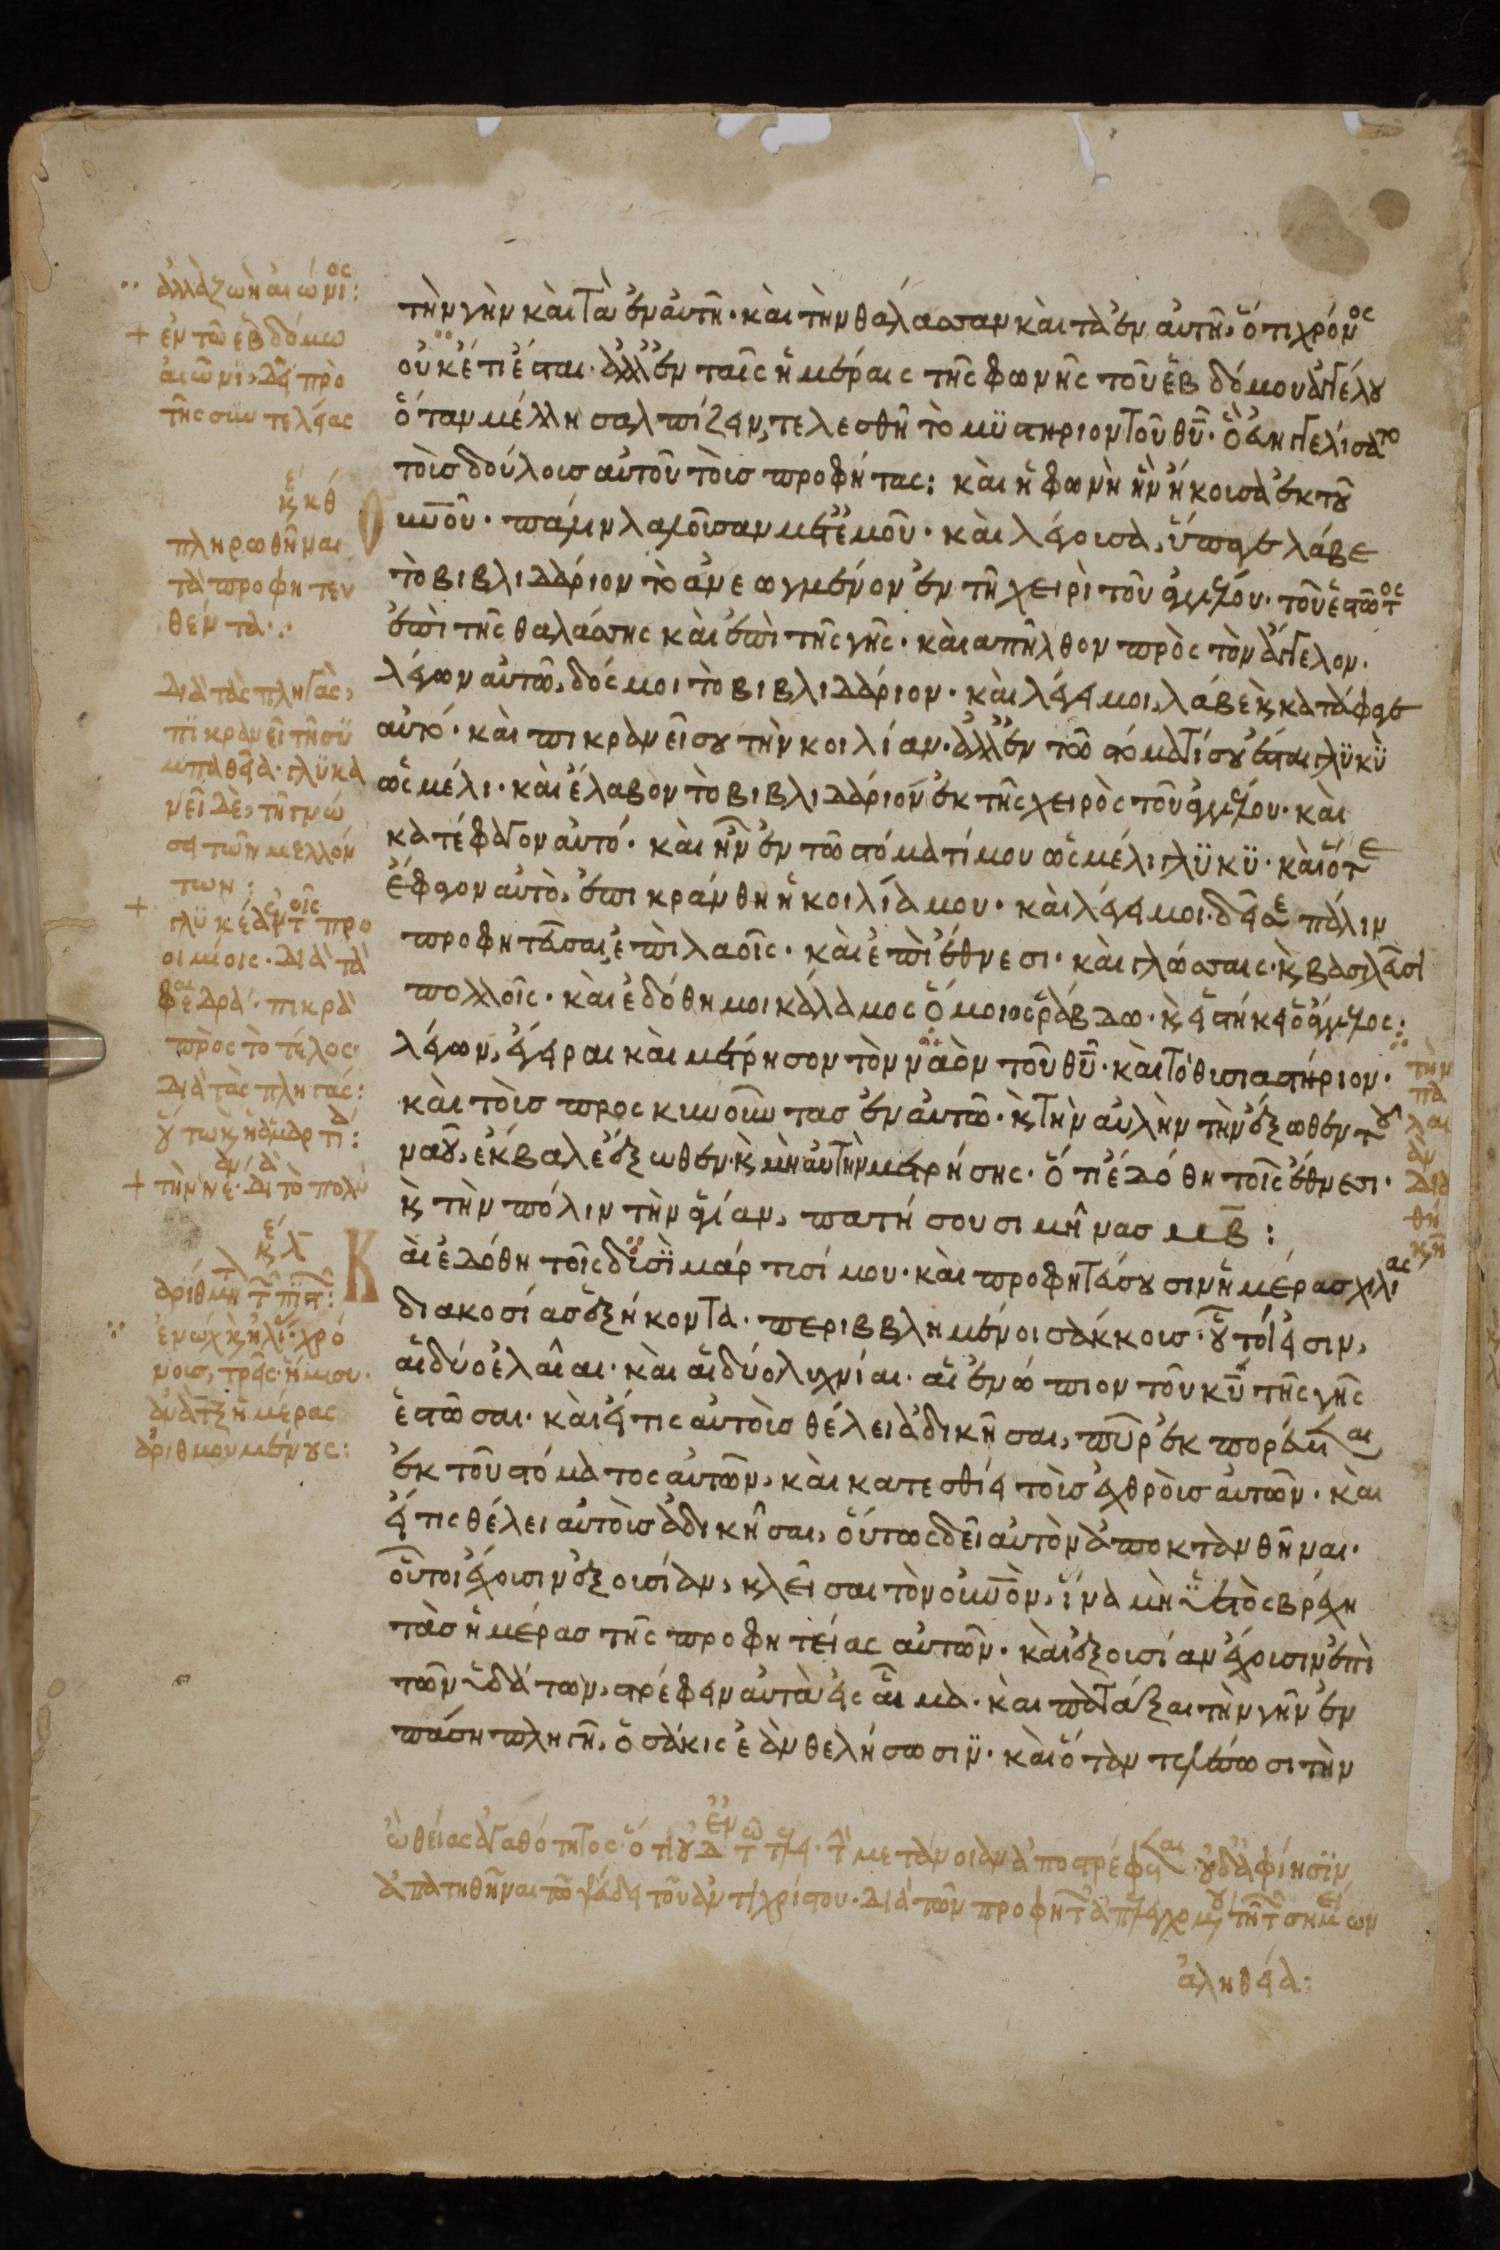 τὴν γὴν καὶ τὰ ἐν αὐτῆ· καὶ τὴν θάλασσαν καὶ τὰ ἐν αὐτῆ, ὅτι χρόνος
οὐκέτι ἔσται· ἀλλ' ἐν ταῖς ἡμέραις τῆς φωνῆς τοῦ ἑβδόμου ἀγγέλου
ὅταν μέλλη σαλπίζειν, τελεσθῆ τὸ μϋστήριον τοῦ θῦ· ὃ εὐηγγελίσατο
τοὶς δούλοις αὐτοῦ τοὶς προφήταις: καὶ ἡ φωνὴ ἣν ἤκουσα ἐκ τοῦ
οὐνοῦ· πάλιν λαλοῦσαν μετ' ἐμοῦ· καὶ λέγουσα, ὕπαγε λάβε
τὸ βιβλιδάριον τὸ ἀνεωγμένον ἐν τῆ χειρὶ τοῦ ἀγγέλου· τοῦ ἑστῶτος
ἐπὶ τῆς θαλάσσης καὶ ἐπὶ τῆς γῆς· καὶ απῆλθον πρὸς τὸν ἄγγελον·
λέγων αὐτῶ, δός μοι τὸ βιβλιδάριον· καὶ λέγει μοι, λάβε καὶ κατάφαγε
αὐτό· καὶ πικρανεῖ σου τὴν κοιλίαν· ἀλλ' ἐν τῶ στόματί σου ἔσται γλϋκὺ
ὡς μέλι· καὶ ἔλαβον τὸ βιβλιδάριον ἐκ τῆς χειρὸς τοῦ ἀγγέλου· καὶ
κατέφαγον αὐτό· καὶ ἦν ἐν τῶ στόματί μου ὡς μέλι γλϋκϋ· καὶ ὅτε
ἔφαγον αὐτὸ, ἐπικράνθη ἡ κοιλία μου· καὶ λέγει μοι· δεῖ σε πάλιν
προφητεῦσαι ἐπὶ λαοῖς· καὶ ἐπὶ ἔθνεσι· καὶ γλώσσαις· καὶ βασιλεῦσι
πολλοῖς· καὶ ἐδόθη μοι κάλαμος ὅμοιος ῥάβδω· καὶ εἱστήκει ὁ ἄγγελος:
λέγων, ἔγειραι καὶ μέτρησον τὸν ναὸν τοῦ θῦ· καὶ τὸ θυσιαστήριον·
καὶ τοὶς προσκυνοῦντας ἐν αὐτῶ· καὶ τὴν αὐλὴν τὴν ἔξωθεν τοῦ
ναοῦ, ἔκβαλε ἔξωθεν· καὶ μὴ αὐτὴν μετρήσης· ὅτι ἐδόθη τοῖς ἔθνεσι·
καὶ τὴν πόλιν τὴν ἁγίαν, πατήσουσι μῆνας μβ:
Και ἐδόθη τοῖς δυσὶ μάρτυσί μου· καὶ προφητεύσουσιν ἡμέρας χιλίας
διακοσίας ἑξήκοντα· περιββλημένοι σάκκοις· οὗτοί εἰσιν,
αἱ δύο ἐλαῖαι· καὶ αἱ δύο λυχνίαι· αἱ ἐνώπιον τοῦ κῦ τῆς γῆς
ἑστῶσαι· καὶ εἴ τις αὐτοὶς θέλει ἀδικῆσαι, πῦρ ἐκπορεύεται
ἐκ τοῦ στόματος αὐτῶν, καὶ κατεσθίει τοὶς ἐχθροὶς αὐτῶν· καὶ
εἴ τις θέλει αὐτοὶς ἀδικῆσαι, οὕτως δεῖ αὐτὸν ἀποκτανθῆναι·
οὗτοι ἔχουσιν ἐξουσίαν, κλεῖσαι τὸν οὐνὸν, ἵνα μὴ ὑετὸς βρέχη
τὰς ἡμέρας τῆς προφητείας αὐτῶν· καὶ ἐξουσίαν ἔχουσιν ἐπὶ
τῶν ὑδάτων, στρέφειν αὐτὰ εἰς αἷμα· καὶ πατάξαι τὴν γῆν ἐν
πάση πληγῆ, ὁσάκις ἐὰν θελήσωσιν· καὶ ὅταν τελέσωσι τὴν
ἀλλὰ ζωὴ αἰώνιος:
ἐν τῶ ἑβδόμω
αἰῶνι, δεῖ πρὸ
τῆς συντελείας
κθ
πληρωθῆναι
τὰ προφητευ
θέντα·
διὰ τὰς πληγὰς,
πϊκρανεῖ τῆ σϋ
μπαθεία· γλϋκα
νεῖ δὲ, τῆ γνώ
σει τῶν μελλόν
των:
γλϋκέα ἐν τοῖς προ
οιμίοις· διὰ τὰ
φαιδρά· πικρὰ
πρὸς τὸ τέλος·
διὰ τὰς πληγάς:
κ λ
ἐνὼχ καὶ ἠλί· χρό
νοις, τρεῖς ἥμισυ·
ἡμέρας
ἀριθμουμένους:
τὴν
πα
λαι
ὰν
δια
θή
κην
ὠθείας ἀγαθότητος· μετάνοιαν ἀποστρέφεται· ἀφίησϊν
ἀπατηθῆναι τῶ ψεύδει τοῦ ἀντιχρίστου· διὰ τῶν προφητῶν σημείων
ἀληθεία: